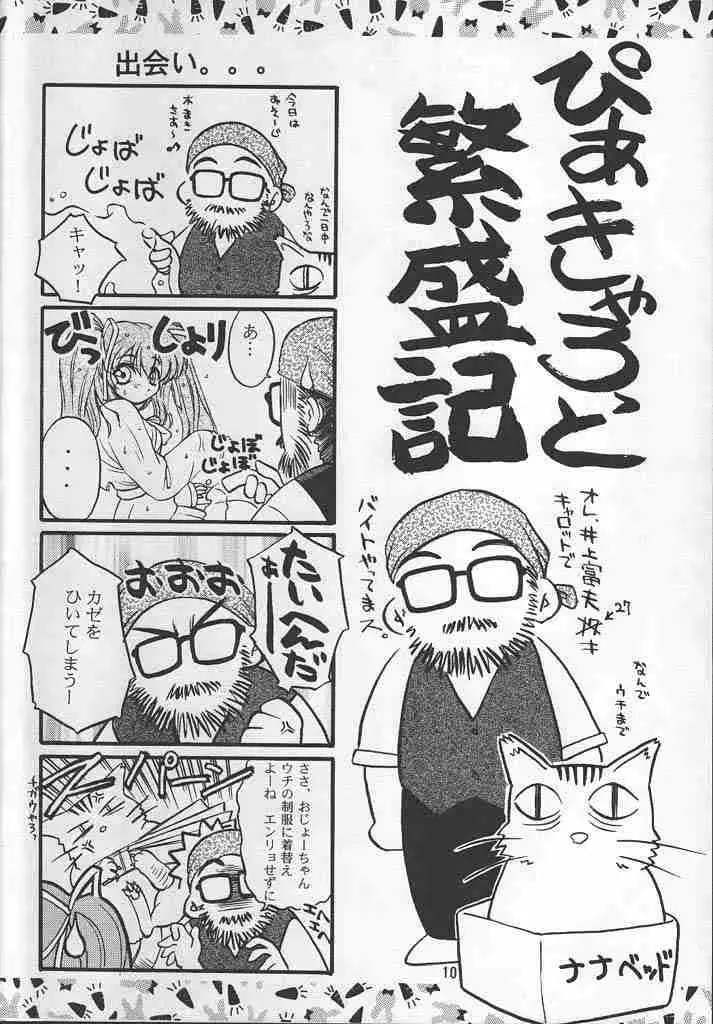 ぴあきゃろっと
繁盛記
オレ、井上富夫
27
キャロットで
バイトやってまス。
なんで
ウチまで
ナナベッド
10
出会い。。。
今日は
水まき
さあ〜♪
じょば
じょば
なんで一日中
なんやろな
キャッ!
あ…
じょり
びっ
じょぼ
じょぼ
・・・
たいへんだ
ぁー
おおおお
カゼを
ひいてしまうー
ささ、おじょーちゃん
ウチの制服に着替え
よーね エンリョせずに
エヘ
エヘ
スパーン
チガウやろ?